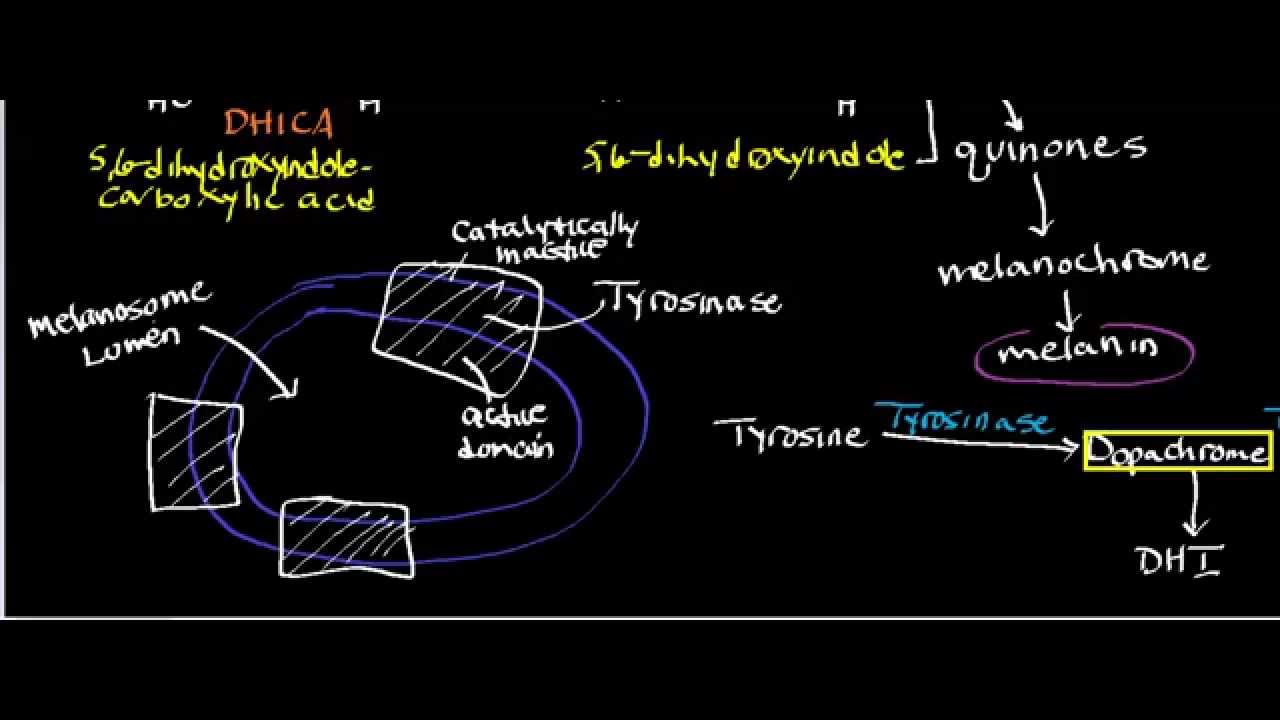 DHICA
5,6-dihydroxyindole-
carboxylic acid
5,6-dihydroxyindole
quinones
melanochrome
melanin
Catalytically
inactive
Tyrosinase
melanosome
Lumen
active
domain
Tyrosine
Tyrosinase
Dopachrome
DHI